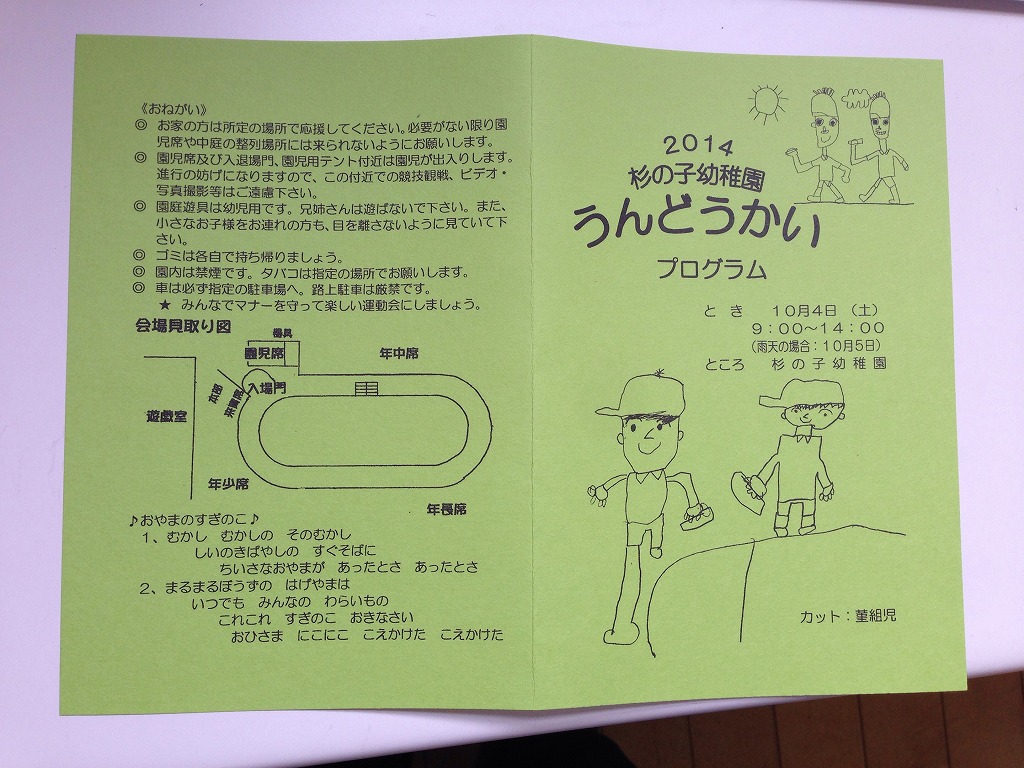 《おねがい》
◎ お家の方は所定の場所で応援してください。必要がない限り園
児席や中庭の整列場所には来られないようにお願いします。
◎ 園児席及び入退場門、園児用テント付近は園児が出入りします。
進行の妨げになりますので、この付近での競技観戦、ビデオ・
写真撮影等はご遠慮下さい。
◎ 園庭遊具は幼児用です。兄姉さんは遊ばないで下さい。また、
小さなお子様をお連れの方も、目を離さないように見ていて下
さい。
◎ ゴミは各自で持ち帰りましょう。
◎ 園内は禁煙です。タバコは指定の場所でお願いします。
◎ 車は必ず指定の駐車場へ。路上駐車は厳禁です。
★ みんなでマナーを守って楽しい運動会にしましょう。
会場見取り図
器具
園児席
年中席
入場門
本部
来賓席
遊戯室
年少席
年長席
♪おやまのすぎのこ♪
1、むかし むかしの そのむかし
しいのきばやしの すぐそばに
ちいさなおやまが あったとさ あったとさ
2、まるまるぼうずの はげやまは
いつでも みんなの わらいもの
これこれ すぎのこ おきなさい
おひさま にこにこ こえかけた こえかけた
2014
杉の子幼稚園
うんどうかい
プログラム
と き 10月4日 (土)
9:00~14:00
(雨天の場合:10月5日)
ところ 杉の子幼稚園
カット:菫組児